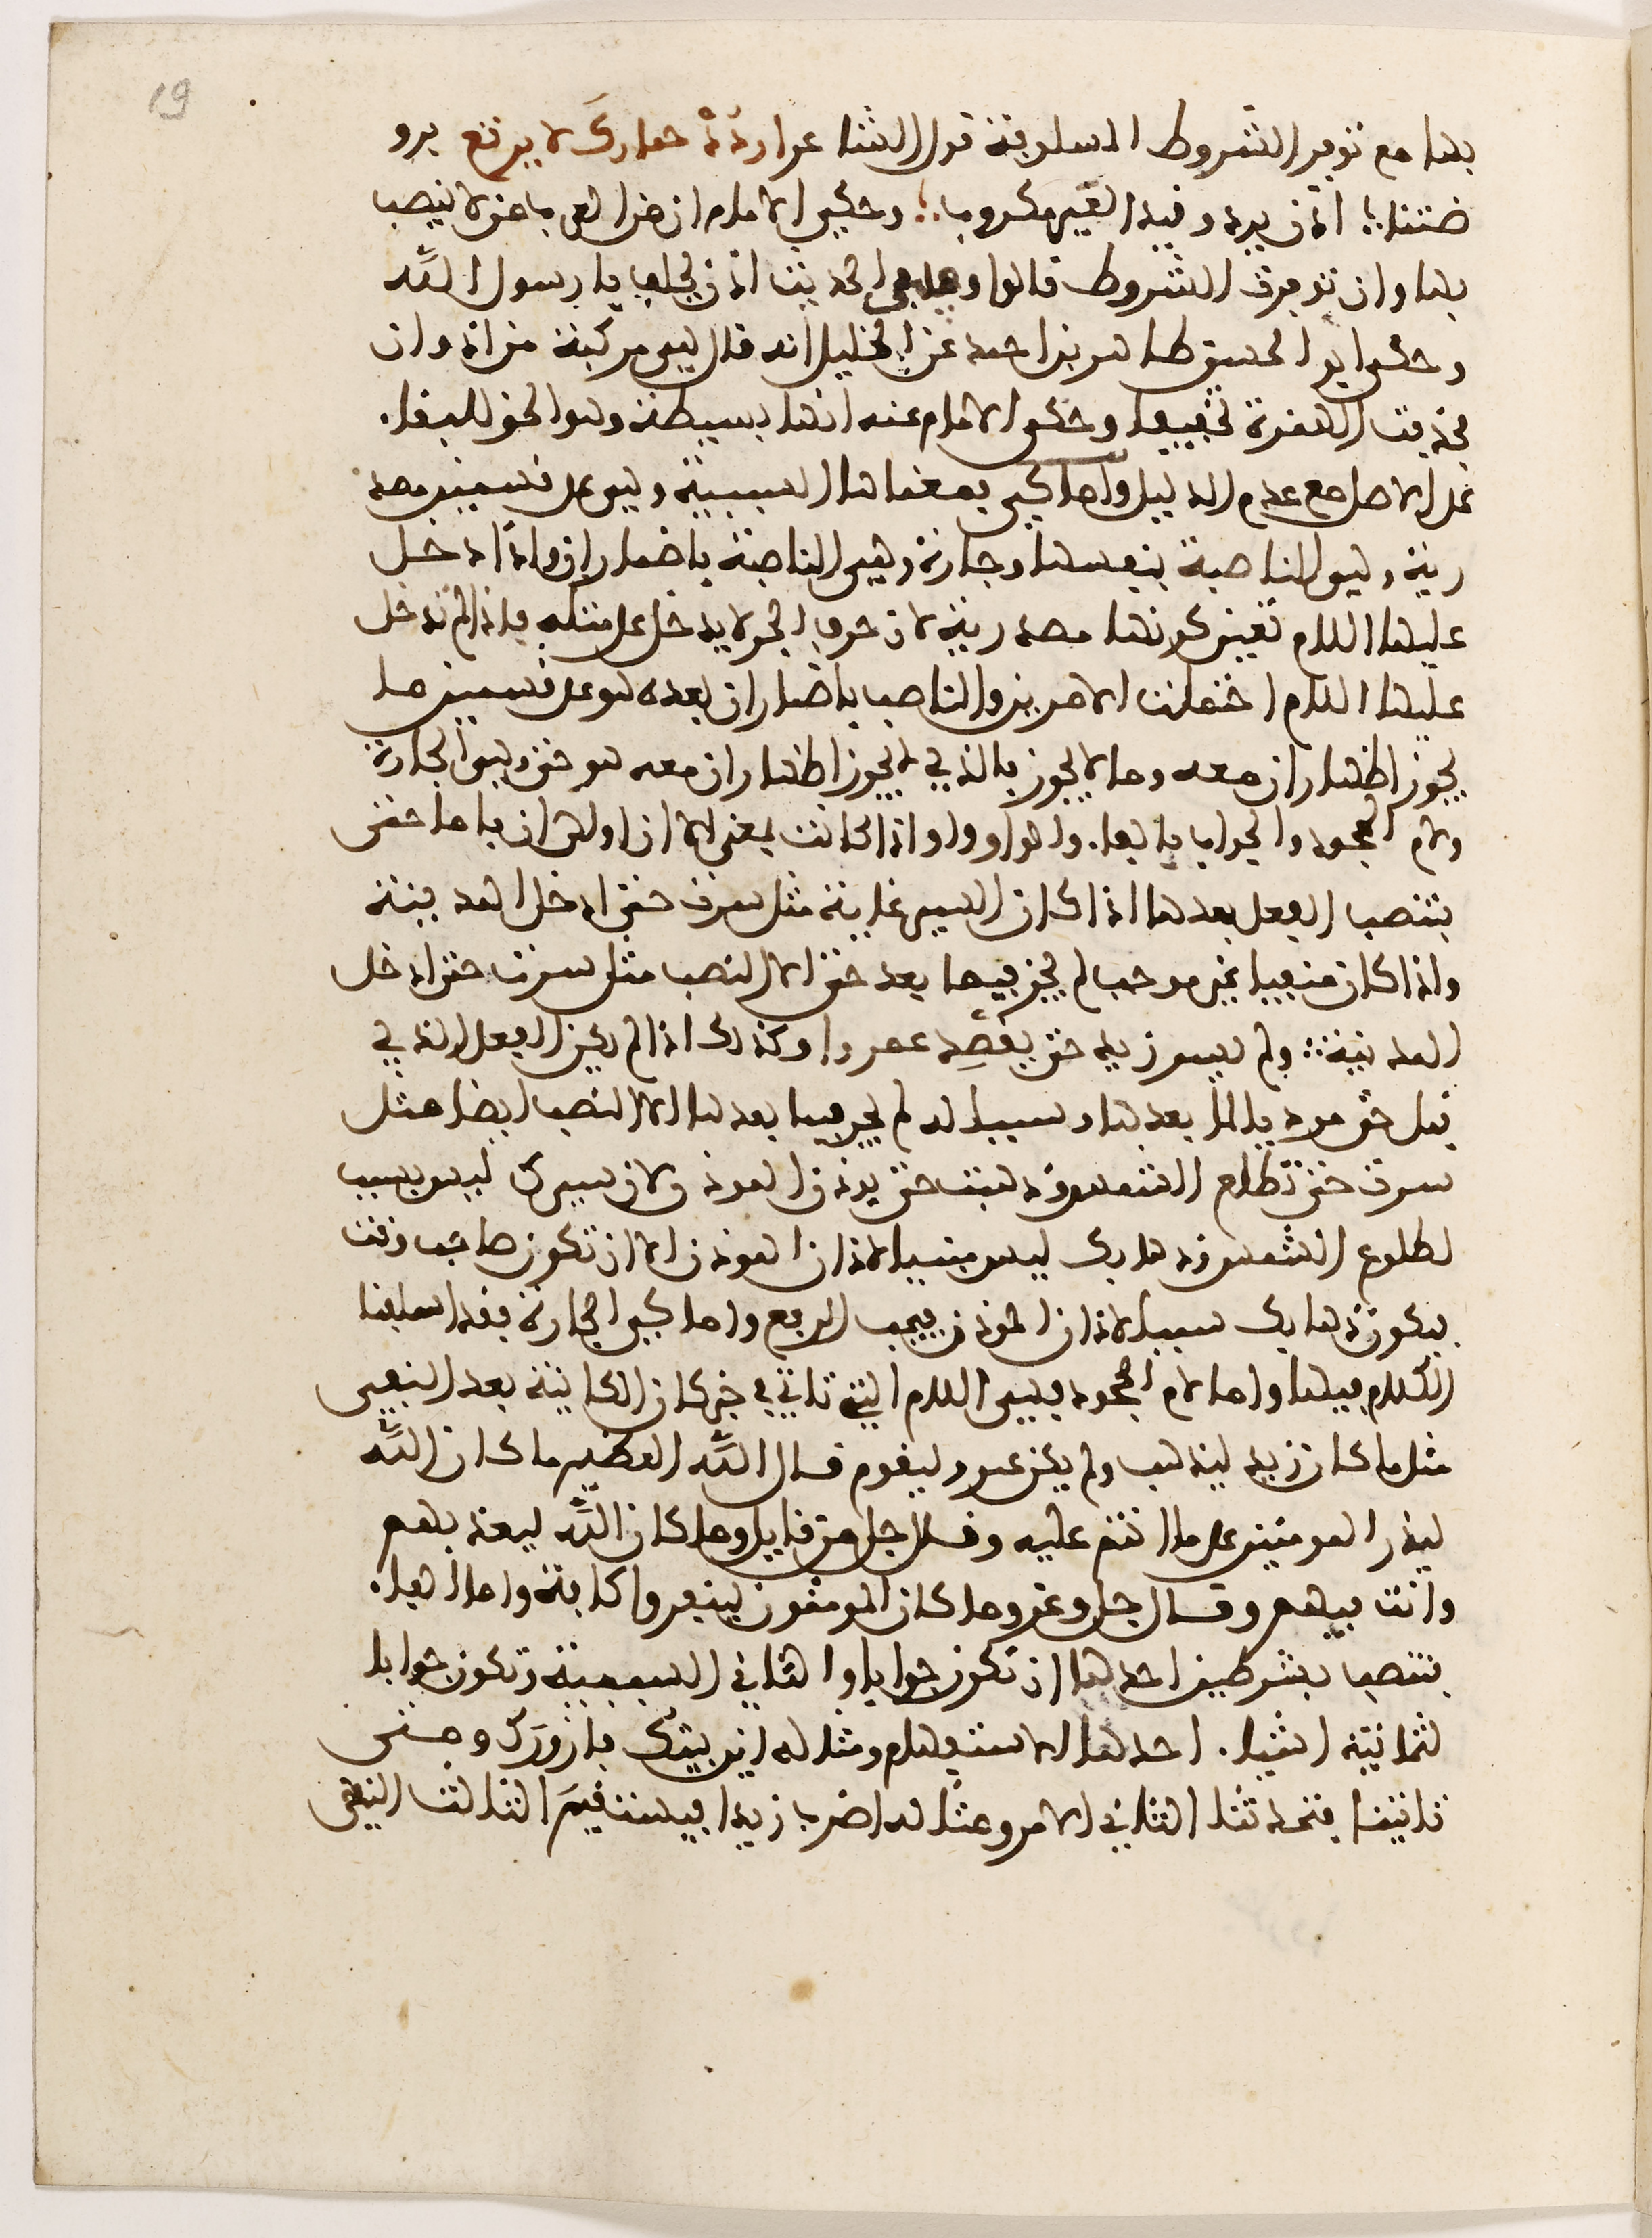 19
بها مع توفر الشروط السابقة قول الشاعر اردد حمارك لا يرتع برو
ضتنا اذن يرد وقيد العير مكروب وحكى الامام ان من العرب من لا ينصب
بها وان توفرت الشروط قالوا وهى فى الحديث اذن يحلف يا رسول الله
وحكى ابو الحسن طاهر بن احمد عن الخليل انه قال هى مركبة من اذ وان
فحذفت الهمزة تخفيفا وحكى الامام عنه انها بسيطة وهو الحق للبقاء
على الاصل مع عدم الدليل واما كى بمعناها السببية وهى على قسمين مصد
رية وهى الناصبة بنفسها وجارة وهى الناصبة باضمار ان واذا دخل
عليها اللام تعين كونها مصدرية لان حرف الجر لا يدخل على مثله واذا لم تدخل
عليها اللام احتملت الامرين والناصب باضمار ان بعده هو على قسمين ما
يجوز اظهار ان معه وما لا يجوز فالذى لا يجوز اظهار ان معه هو حتى وكى الجارة
ولام الجحود والجواب بالفاء والواو واو اذا كانت بمعنى الا ان او الى ان فاما حتى
ينتصب الفعل بعدها اذا كان السير غاية مثل سرت حتى ادخل المدينة
واذا كان منفيا غير موجب لم يجز فيما بعد حتى الا النصب مثل سرت حتى ادخل
المدينة ولم يسر زيد حتى يقصد عمروا وكذلك اذا لم يكن الفعل الذى
قبل حتى موديا لما بعدها وسببا له لم يجز فيما بعدها الا النصب ايضا مثل
سرت حتى تطلع الشمس وذهبت حتى يوذن الموذن لان سيرك ليس بسبب
لطلوع الشمس وذهابك ليس سببا لاذان الموذن الا ان تكون صاحب وقت
فيكون ذهابك سببا لاذان الموذن فيجب الرفع واما كى الجارة فقد اسلفنا
الكلام فيها واما لام الجحود فهى اللام التى تاتى فى خبر كان الكاينة بعد النفى
مثل ما كان زيد ليذهب ولم يكن عمرو ليقوم قال الله العظيم ما كان الله
ليذر المومنين على ما انتم عليه وقال جل من قايل وما كان الله ليعذبهم
وانت فيهم وقال جل وعز وما كان المومنون لينفروا كافة واما الفاء
فتنصب بشرطين احدهما ان تكون جوابا والثانى السببية وتكون جوابا
لثمانية اشياء احدها الاستفهام ومثاله اين بيتك فازورك ومتى
تاتينا فتحدثنا الثانى الامر ومثاله اضرب زيدا فيستقيم الثالث النهى